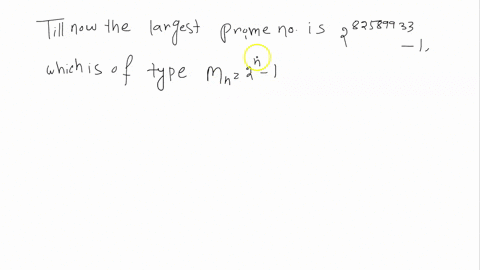 Till now the largest prome no. is 2^82589933 - 1,
which is of type Mn = 2^n - 1